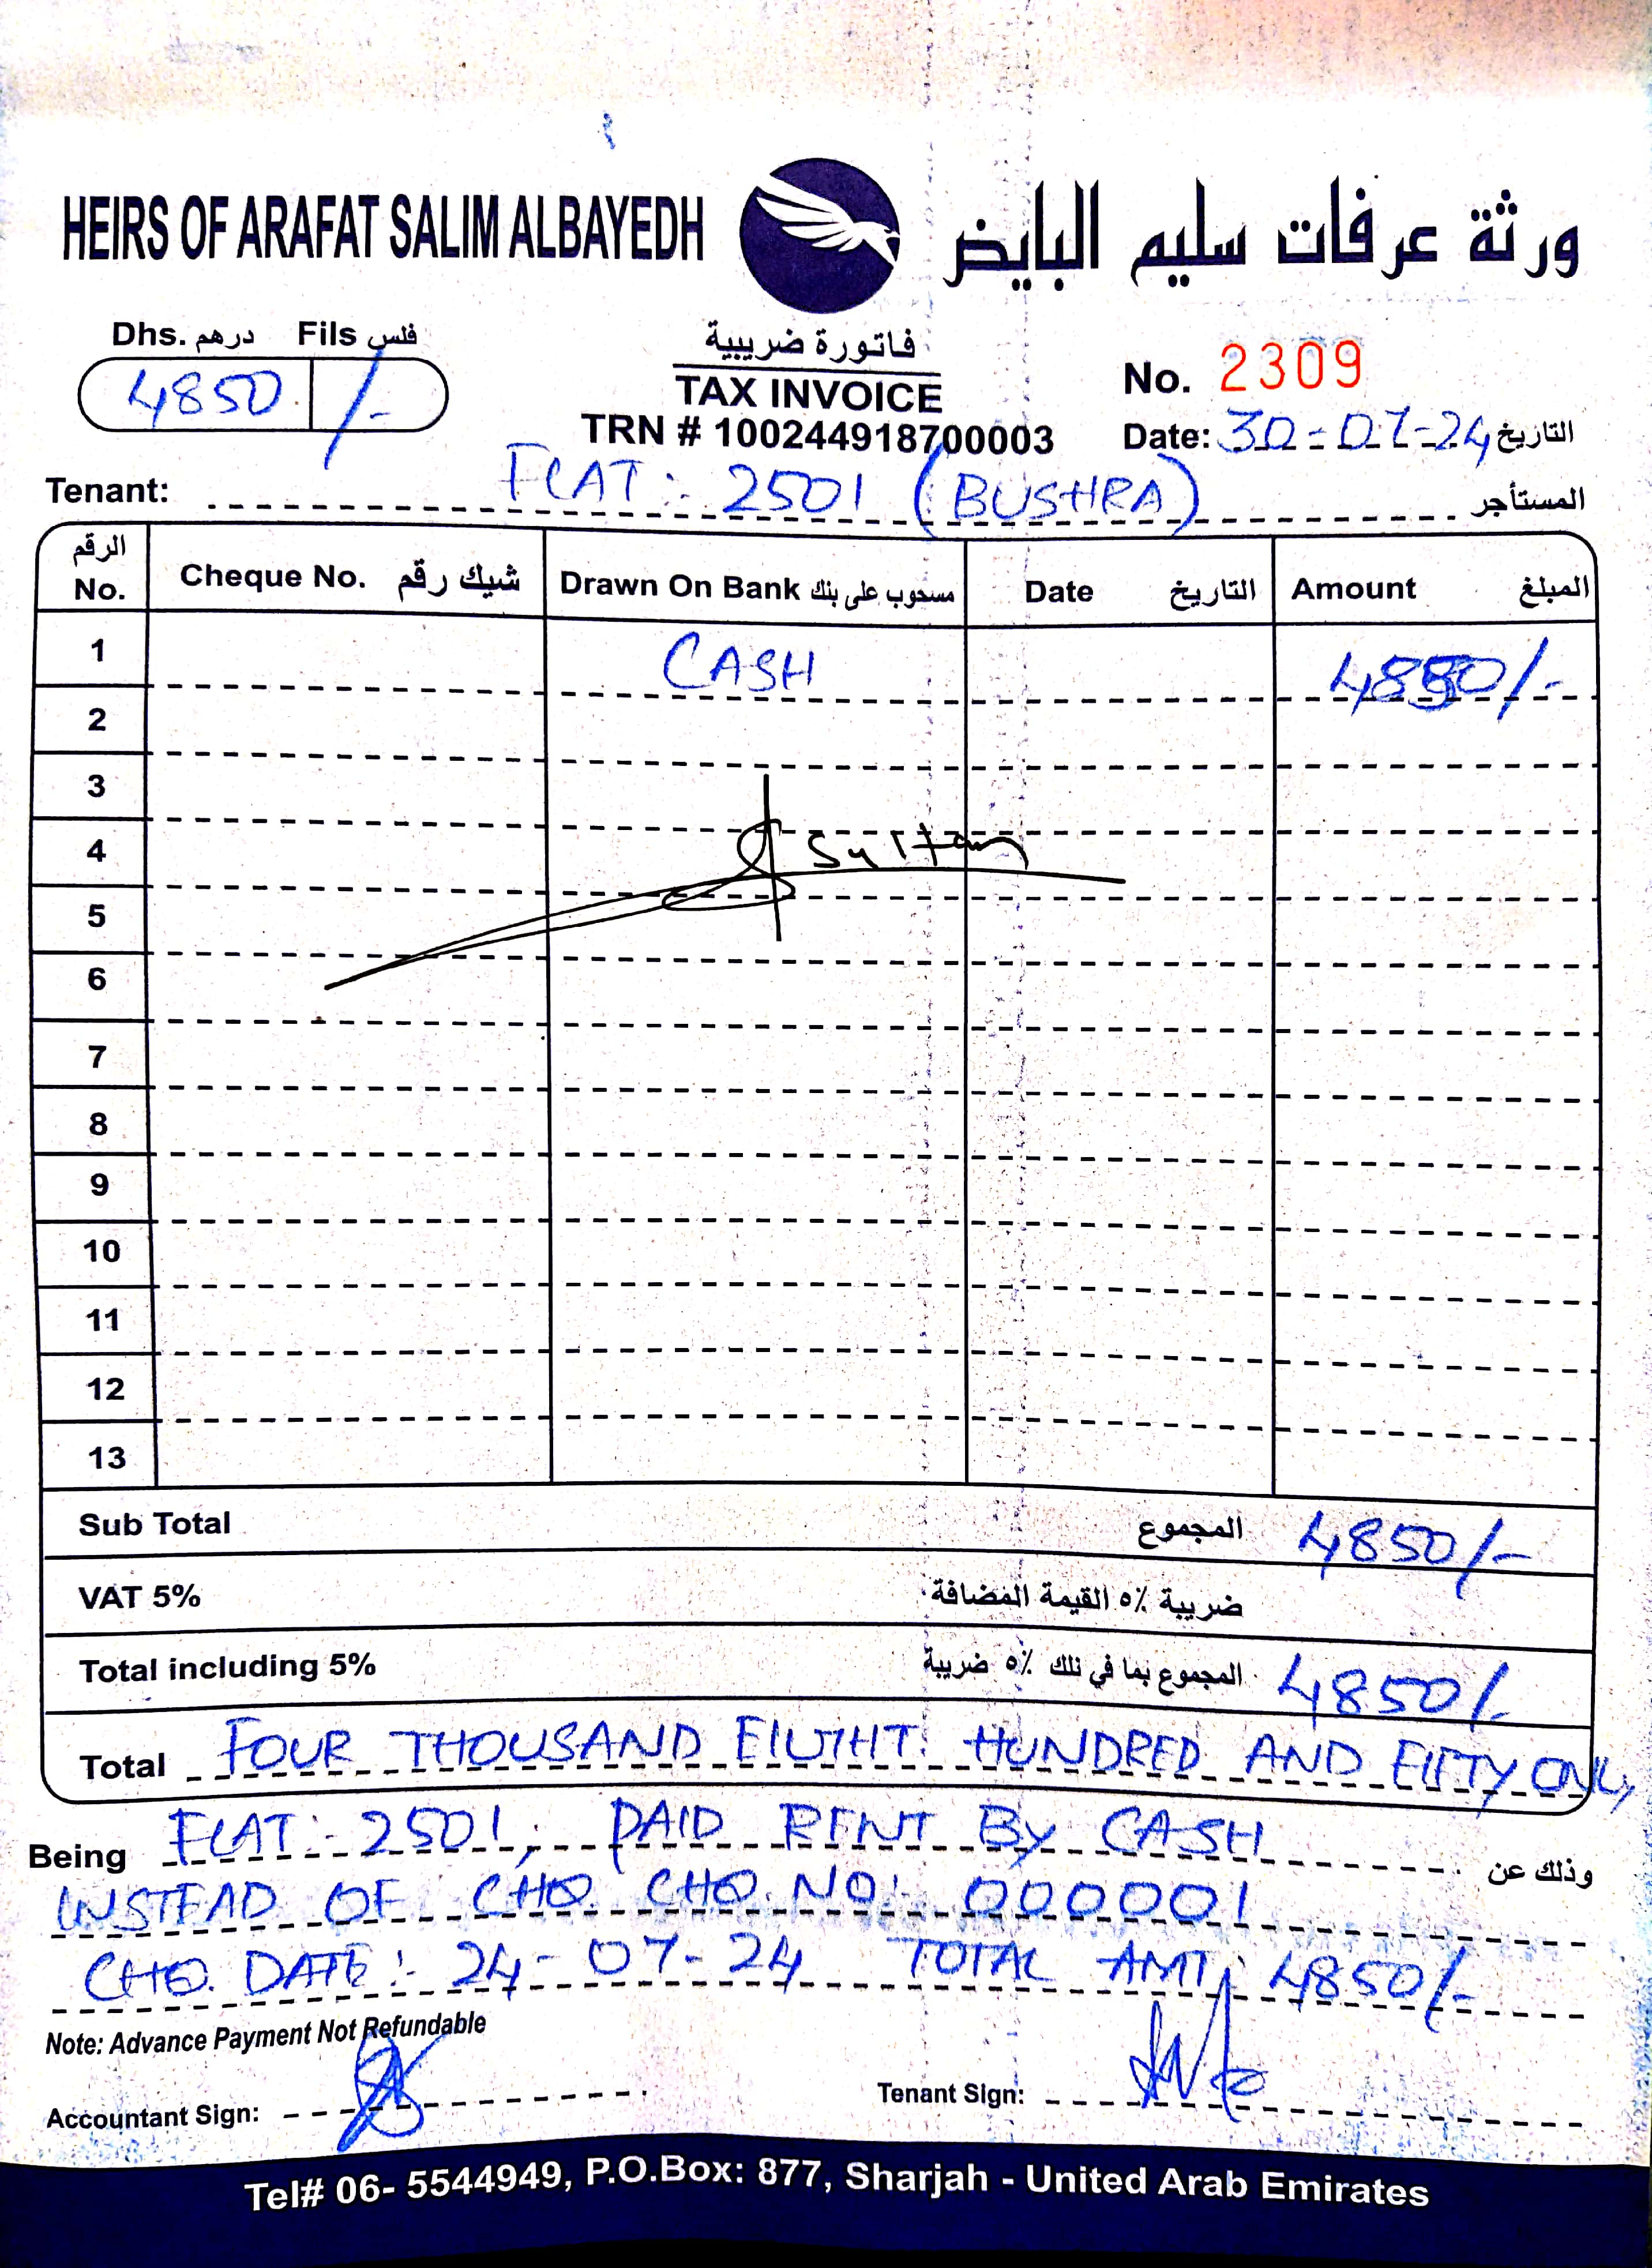 HEIRS OF ARAFAT SALIM ALBAYEDH ورثة عرفات سليم البايض
Dhs. درهم Fils فلس
4850 /-
فاتورة ضريبية
TAX INVOICE
TRN # 100244918700003
No. 2309
Date: 30-07-24 التاريخ
Tenant: FLAT:- 2501 (BUSHRA) المستأجر
الرقم No. Cheque No. شيك رقم Drawn On Bank مسحوب على بنك Date التاريخ Amount المبلغ
1 CASH 4850/-
2
3
4 Sultan
5
6
7
8
9
10
11
12
13
Sub Total المجموع 4850/-
VAT 5% ضريبة ٥٪ القيمة المضافة
Total including 5% المجموع بما في ذلك ٥٪ ضريبة 4850/-
Total FOUR THOUSAND EIGHT HUNDRED AND FIFTY ONLY
Being FLAT:- 2501, PAID RENT BY CASH وذلك عن
INSTEAD OF CHQ. CHQ. NO:- 000001
CHQ. DATE:- 24-07-24 TOTAL AMT: 4850/-
Note: Advance Payment Not Refundable
Accountant Sign: Tenant Sign:
Tel# 06- 5544949, P.O.Box: 877, Sharjah - United Arab Emirates